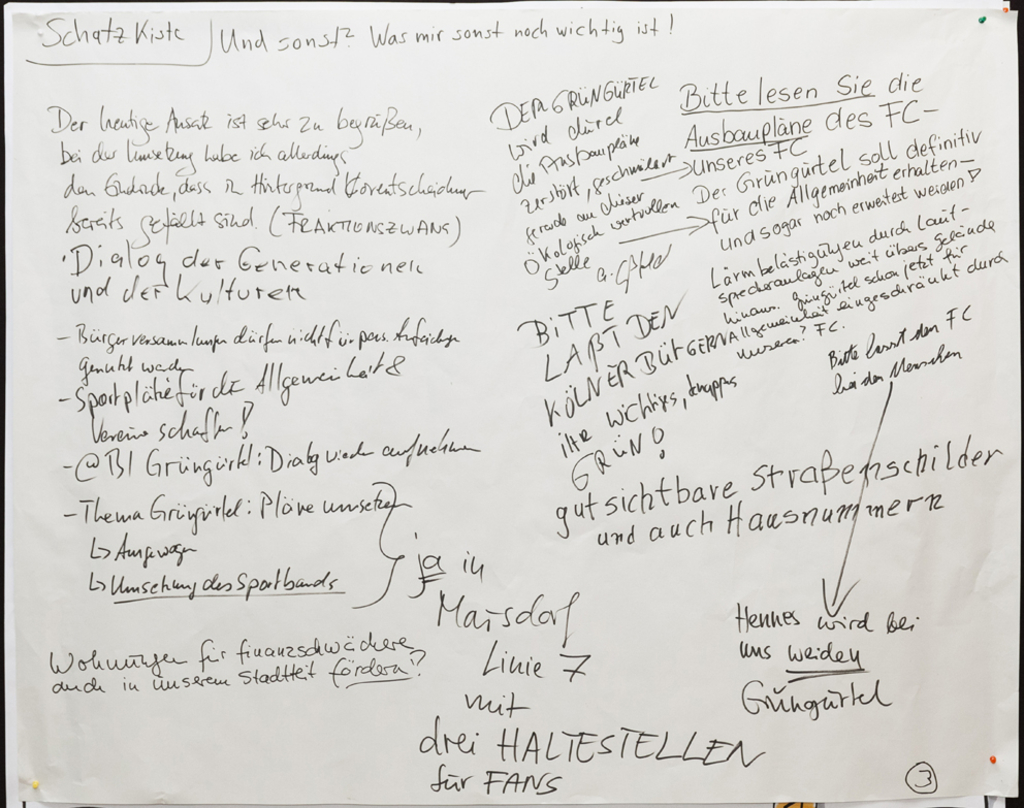 Schatzkiste
Und sonst? Was mir sonst noch wichtig ist!
Der heutige Ansatz ist sehr zu begrüßen,
bei der Umsetzung habe ich allerdings
den Eindruck, dass im Hintergrund Vorentscheidungen
bereits gefällt sind. (FRAKTIONSZWANG)
• Dialog der Generationen
und der Kulturen
- Bürgerversammlungen dürfen nicht für
genutzt werden
- Sportplätze für die Allgemeinheit &
Vereine schaffen!
- @BI Grüngürtel: Dialog wieder aufnehmen
- Thema Grüngürtel: Pläne umsetzen
↳ Ausgewogen
↳ Umsetzung des Sportbands
Wohnungen für finanzschwächere
auch in unserem Stadtteil fördern!?
ja in
Marsdorf
Linie 7
mit
drei HALTESTELLEN
für FANS
DER GRÜNGÜRTEL
wird durch
die Ausbaupläne
zerstört, geschmälert
gerade an dieser
Ökologisch wertvollen
Stelle
BITTE
LAßT DEN
KÖLNER BÜRGERN
IHR wichtiges, knappes
GRÜN!
Bitte lesen Sie die
Ausbaupläne des FC-
unseres FC
Der Grüngürtel soll definitiv
für die Allgemeinheit erhalten-
und sogar noch erweitert werden!
Lärmbelästigungen durch Laut-
sprecheranlagen weit übers Gelände
hinaus. Grüngürtel schon jetzt für
Allgemeinheit eingeschränkt durch
unseren? FC.
Bitte lasst den FC
bei den Menschen
gut sichtbare Straßenschilder
und auch Hausnummern
Hennes wird bei
uns weiden
Grüngürtel
3